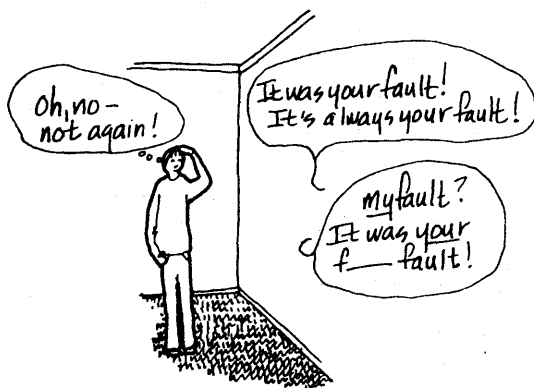 Oh, no -
not again!
It was your fault!
It's always your fault!
my fault?
It was your
f___ fault!